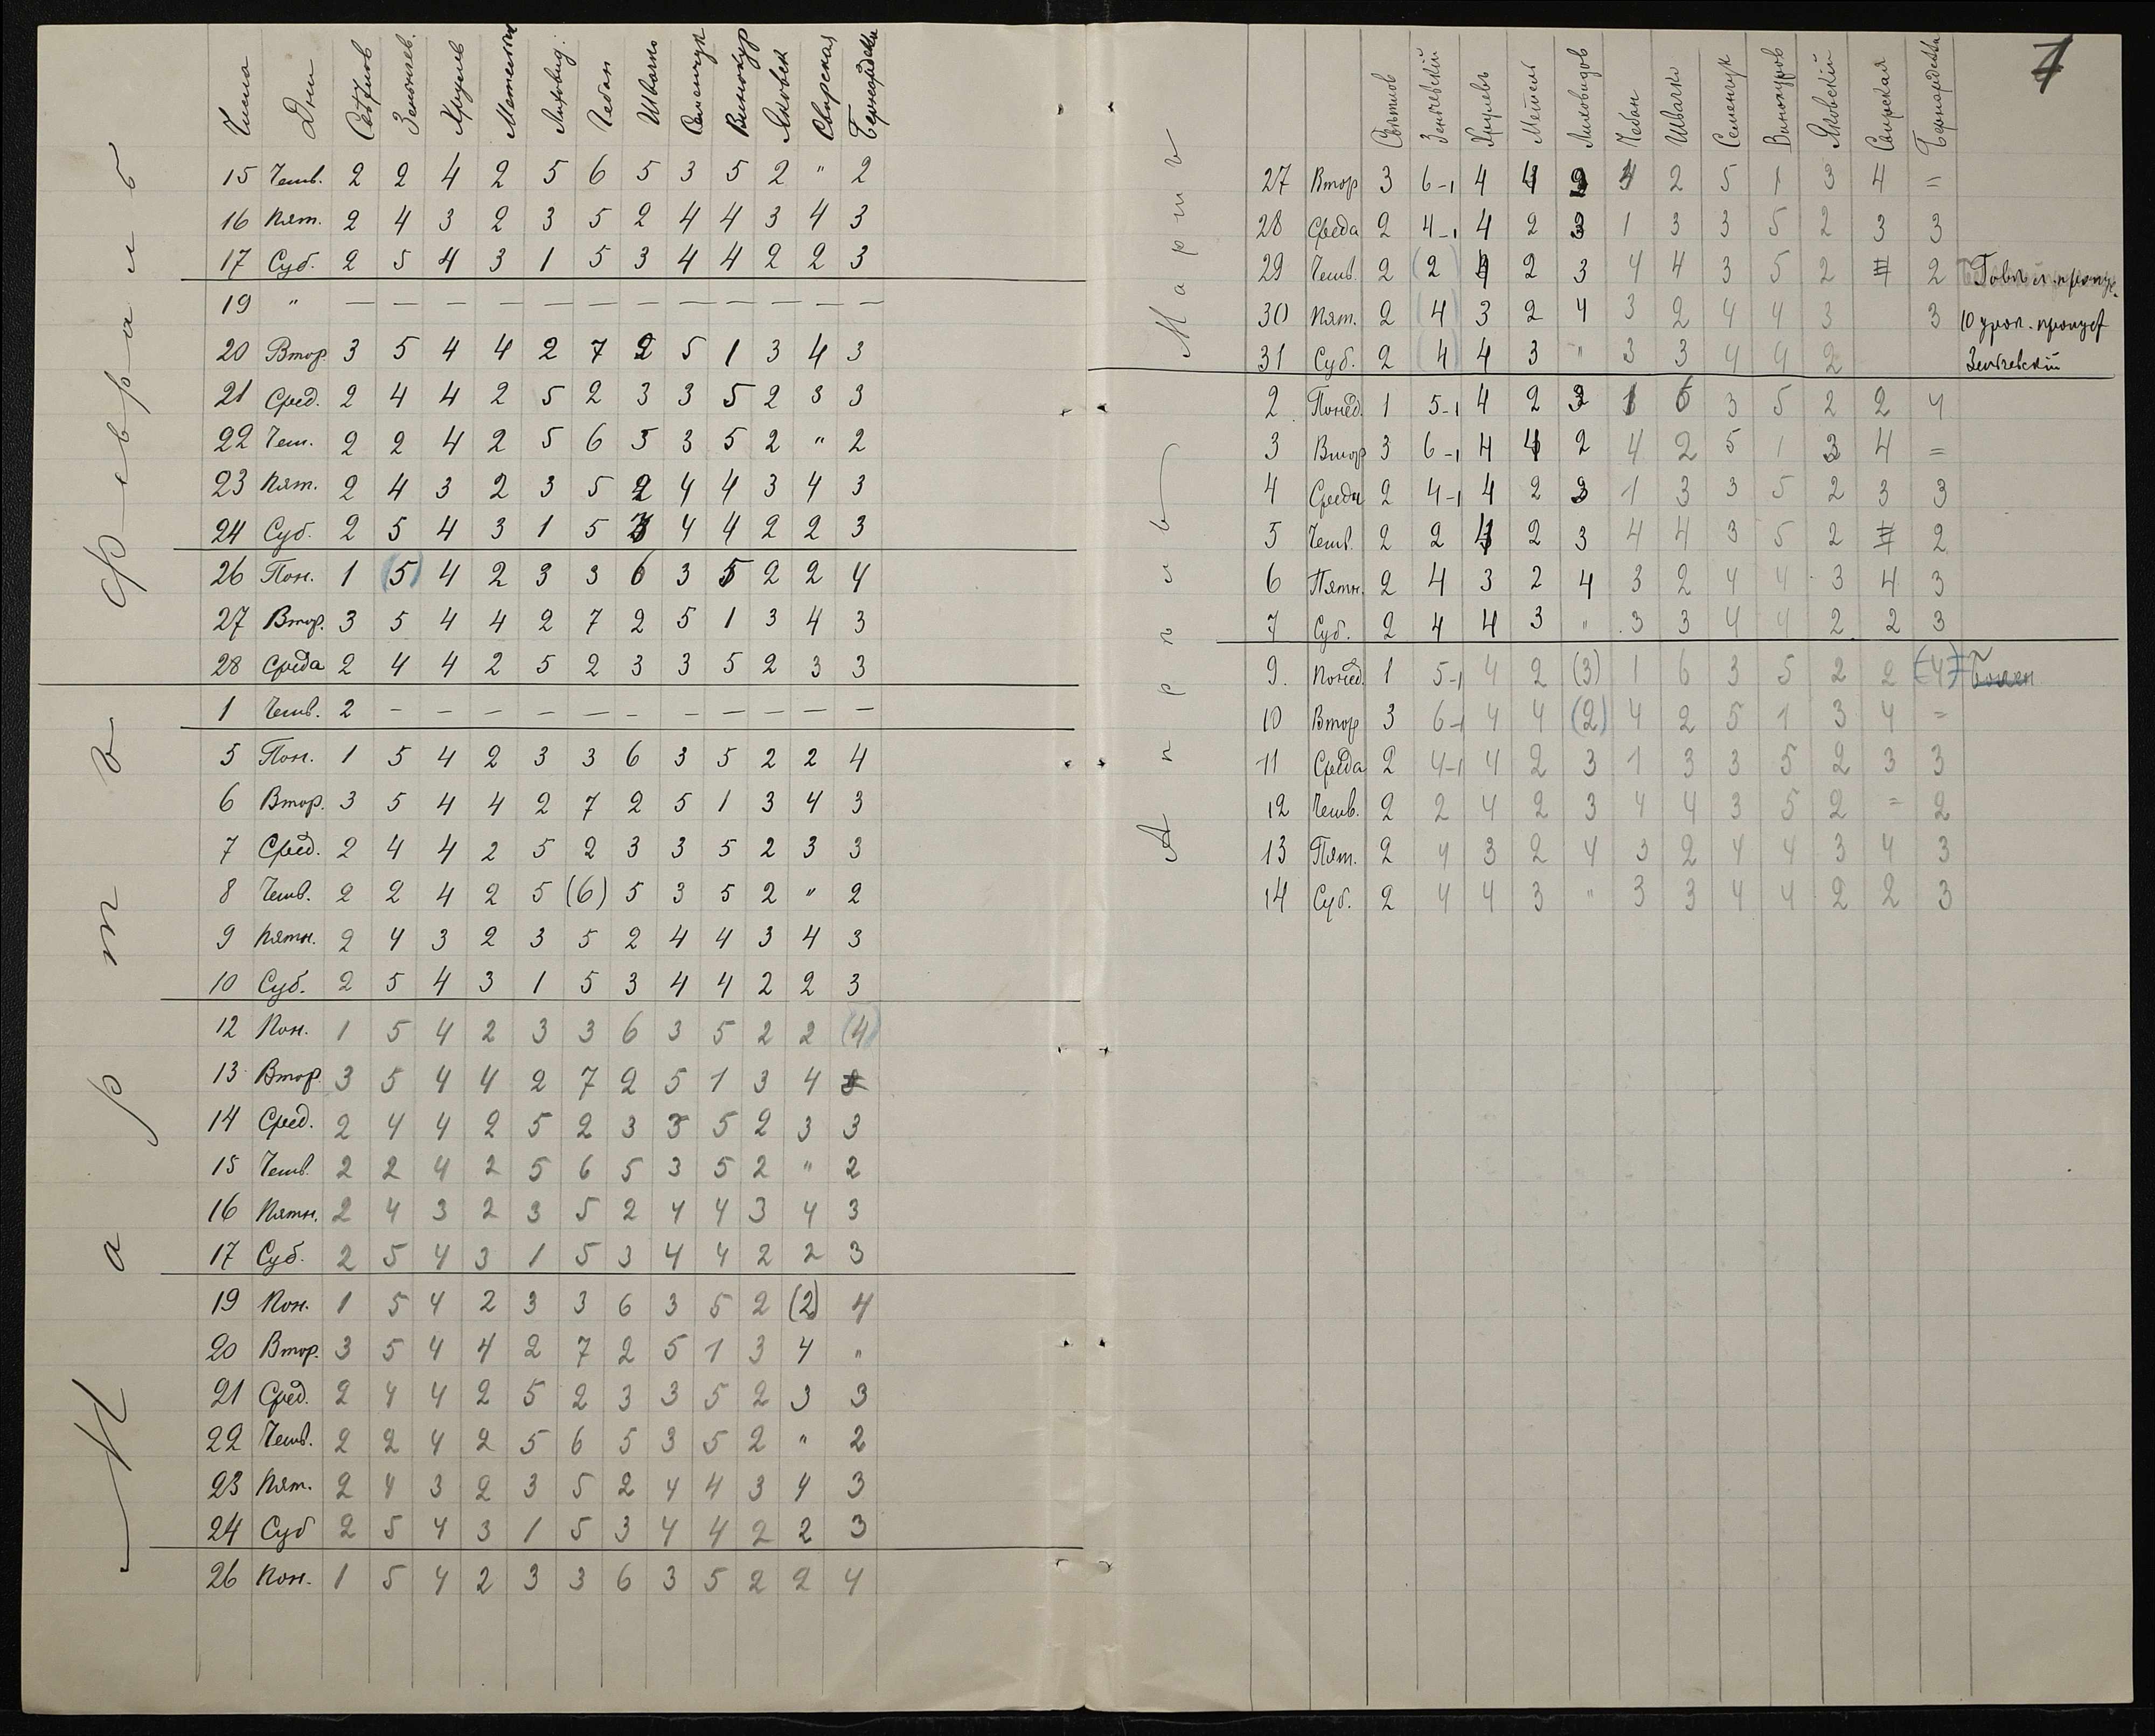 Февраль
Числа Дни Светлов Зеленчев. Хрулев Метельск Лиховид. Чебан Швачко Семенчук Винокур Яковск Свирская Бернардский
15 Четв. 2 2 4 2 5 6 5 3 5 2 " 2
16 Пят. 2 4 3 2 3 5 2 4 4 3 4 3
17 Суб. 2 5 4 3 1 5 3 4 4 2 2 3
19 " — — — — — — — — — — — —
20 Втор. 3 5 4 4 2 7 2 5 1 3 4 3
21 Сред. 2 4 4 2 5 2 3 3 5 2 3 3
22 Чет. 2 2 4 2 5 6 5 3 5 2 " 2
23 Пят. 2 4 3 2 3 5 2 4 4 3 4 3
24 Суб. 2 5 4 3 1 5 3 4 4 2 2 3
26 Пон. 1 (5) 4 2 3 3 6 3 5 2 2 4
27 Втор. 3 5 4 4 2 7 2 5 1 3 4 3
28 Среда 2 4 4 2 5 2 3 3 5 2 3 3
Март
1 Четв. 2 — — — — — — — — — — —
5 Пон. 1 5 4 2 3 3 6 3 5 2 2 4
6 Втор. 3 5 4 4 2 7 2 5 1 3 4 3
7 Сред. 2 4 4 2 5 2 3 3 5 2 3 3
8 Четв. 2 2 4 2 5 (6) 5 3 5 2 " 2
9 Пятн. 2 4 3 2 3 5 2 4 4 3 4 3
10 Суб. 2 5 4 3 1 5 3 4 4 2 2 3
12 Пон. 1 5 4 2 3 3 6 3 5 2 2 (4)
13 Втор. 3 5 4 4 2 7 2 5 1 3 4
14 Сред. 2 4 4 2 5 2 3 3 5 2 3 3
15 Четв. 2 2 4 2 5 6 5 3 5 2 " 2
16 Пятн. 2 4 3 2 3 5 2 4 4 3 4 3
17 Суб. 2 5 4 3 1 5 3 4 4 2 2 3
19 Пон. 1 5 4 2 3 3 6 3 5 2 (2) 4
20 Втор. 3 5 4 4 2 7 2 5 1 3 4 "
21 Сред. 2 4 4 2 5 2 3 3 5 2 3 3
22 Четв. 2 2 4 2 5 6 5 3 5 2 " 2
23 Пят. 2 4 3 2 3 5 2 4 4 3 4 3
24 Суб 2 5 4 3 1 5 3 4 4 2 2 3
26 Пон. 1 5 4 2 3 3 6 3 5 2 2 4
7
Март
Светлов Зенчевский Хрулевъ Метель Лиховидов Чебан Швачко Семенчук Винокуров Яковский Свирская Бернардский
27 Втор 3 6-1 4 4 2 4 2 5 1 3 4 =
28 Среда 2 4-1 4 2 3 1 3 3 5 2 3 3
29 Четв. 2 (2) 4 2 3 4 4 3 5 2 = 2
30 Пят. 2 (4) 3 2 4 3 2 4 4 3 3 10 урок. пропуст
31 Суб. 2 (4) 4 3 " 3 3 4 4 2 Зенчевский
Апрель
2 Понед. 1 5-1 4 2 3 1 6 3 5 2 2 4
3 Втор 3 6-1 4 4 2 4 2 5 1 3 4 =
4 Среда 2 4-1 4 2 3 1 3 3 5 2 3 3
5 Четв. 2 2 4 2 3 4 4 3 5 2 = 2
6 Пятн. 2 4 3 2 4 3 2 4 4 3 4 3
7 Суб. 2 4 4 3 " 3 3 4 4 2 2 3
9. Понед. 1 5-1 4 2 (3) 1 6 3 5 2 2 (4) Болен
10 Втор 3 6-1 4 4 (2) 4 2 5 1 3 4 =
11 Среда 2 4-1 4 2 3 1 3 3 5 2 3 3
12 Четв. 2 2 4 2 3 4 4 3 5 2 = 2
13 Пят. 2 4 3 2 4 3 2 4 4 3 4 3
14 Суб. 2 4 4 3 " 3 3 4 4 2 2 3